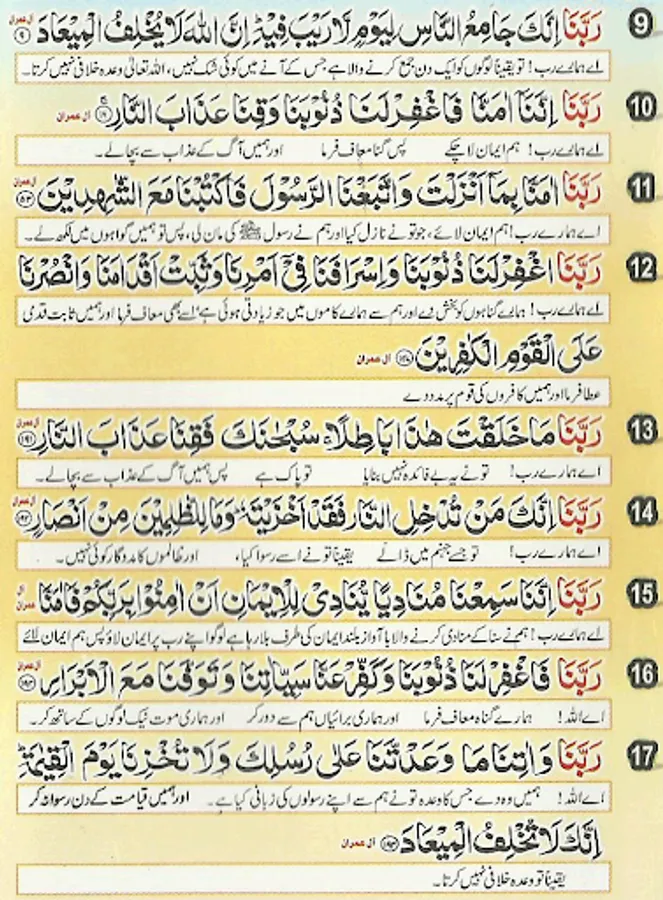 9 رَبَّنَا اِنَّكَ جَامِعُ النَّاسِ لِيَوْمٍ لَّا رَيْبَ فِيْهِ اِنَّ اللّٰهَ لَا يُخْلِفُ الْمِيْعَادَ آل عمران ٩
اے ہمارے رب! تو یقیناً لوگوں کو ایک دن جمع کرنے والا ہے جس کے آنے میں کوئی شک نہیں، اللہ تعالیٰ وعدہ خلافی نہیں کرتا۔
10 رَبَّنَا اِنَّنَا اٰمَنَّا فَاغْفِرْ لَنَا ذُنُوْبَنَا وَقِنَا عَذَابَ النَّارِ ١٦ آل عمران
اے ہمارے رب! ہم ایمان لا چکے پس گناہ معاف فرما اور ہمیں آگ کے عذاب سے بچا لے۔
11 رَبَّنَا اٰمَنَّا بِمَا اَنْزَلْتَ وَاتَّبَعْنَا الرَّسُوْلَ فَاكْتُبْنَا مَعَ الشّٰهِدِيْنَ آل عمران ٥٣
اے ہمارے رب! ہم ایمان لائے، جو تو نے نازل کیا اور ہم نے رسول ﷺ کی مان لی، پس تو ہمیں گواہوں میں لکھ لے۔
12 رَبَّنَا اغْفِرْ لَنَا ذُنُوْبَنَا وَاِسْرَافَنَا فِيْٓ اَمْرِنَا وَثَبِّتْ اَقْدَامَنَا وَانْصُرْنَا
اے ہمارے رب! ہمارے گناہوں کو بخش دے اور ہم سے ہمارے کاموں میں جو زیادتی ہوئی ہے اسے بھی معاف فرما اور ہمیں ثابت قدمی
عَلَى الْقَوْمِ الْكٰفِرِيْنَ ١٤٧ آل عمران
عطا فرما اور ہمیں کافروں کی قوم پر مدد دے
13 رَبَّنَا مَا خَلَقْتَ هٰذَا بَاطِلًا سُبْحٰنَكَ فَقِنَا عَذَابَ النَّارِ آل عمران ١٩١
اے ہمارے رب! تو نے یہ بے فائدہ نہیں بنایا تو پاک ہے پس ہمیں آگ کے عذاب سے بچا لے۔
14 رَبَّنَا اِنَّكَ مَنْ تُدْخِلِ النَّارَ فَقَدْ اَخْزَيْتَهٗ وَمَا لِلظّٰلِمِيْنَ مِنْ اَنْصَارٍ آل عمران ١٩٢
اے ہمارے رب! تو جسے جہنم میں ڈالے یقیناً تو نے اسے رسوا کیا، اور ظالموں کا مددگار کوئی نہیں۔
15 رَبَّنَا اِنَّنَا سَمِعْنَا مُنَادِيًا يُّنَادِيْ لِلْاِيْمَانِ اَنْ اٰمِنُوْا بِرَبِّكُمْ فَاٰمَنَّا آل عمران
اے ہمارے رب! ہم نے سنا کہ منادی کرنے والا با آواز بلند ایمان کی طرف بلا رہا ہے لوگو اپنے رب پر ایمان لاؤ پس ہم ایمان لائے
16 رَبَّنَا فَاغْفِرْ لَنَا ذُنُوْبَنَا وَكَفِّرْ عَنَّا سَيِّاٰتِنَا وَتَوَفَّنَا مَعَ الْاَبْرَارِ آل عمران ١٩٣
اے اللہ! ہمارے گناہ معاف فرما اور ہماری برائیاں ہم سے دور کر اور ہماری موت نیک لوگوں کے ساتھ کر۔
17 رَبَّنَا وَاٰتِنَا مَا وَعَدْتَّنَا عَلٰى رُسُلِكَ وَلَا تُخْزِنَا يَوْمَ الْقِيٰمَةِ
اے اللہ! ہمیں وہ دے جس کا وعدہ تو نے ہم سے اپنے رسولوں کی زبانی کیا ہے۔ اور ہمیں قیامت کے دن رسوا نہ کر
اِنَّكَ لَا تُخْلِفُ الْمِيْعَادَ ١٩٤ آل عمران
یقیناً تو وعدہ خلافی نہیں کرتا۔